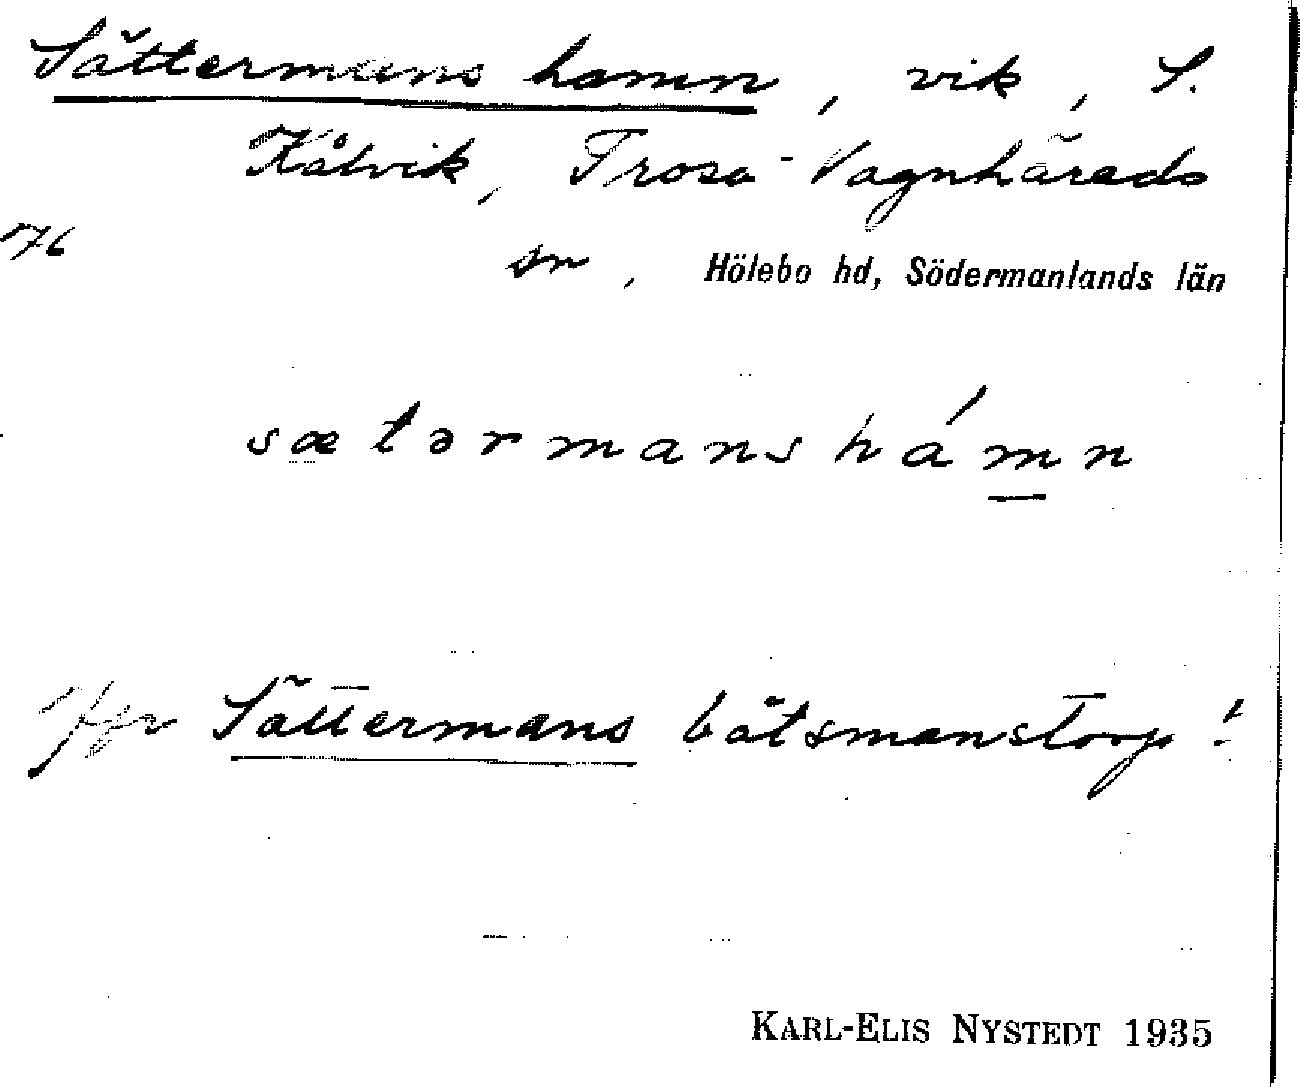 Sättermans hamn, vik, S.
Kålvik, Trosa-Vagnhärads
176
sn, Hölebo hd, Södermanlands län
sætərmanshámn
Jfr Sättermans båtsmanstorp!
KARL-ELIS NYSTEDT 1935